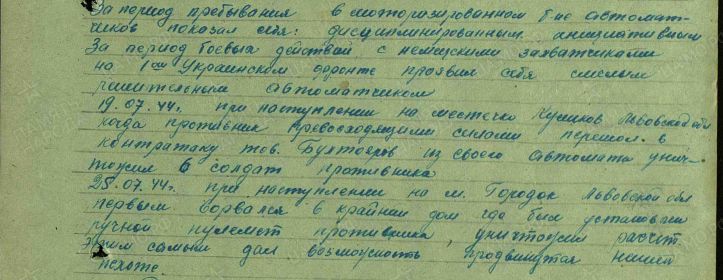 За период пребывания в моторизированном б-не автомат-
чиков показал себя: дисциплинированным инициативным
За период боевых действий с немецкими захватчиками
на 1ом Украинском фронте проявил себя смелым
решительным автоматчиком
19.07.44г. при наступлении на местечко Куликов Львовской обл
когда противник превосходящими силами перешол в
контратаку тов. Бухтояров из своего автомата унич-
тожил 6 солдат противника
25.07.44г. при наступлении на м. Городок Львовской обл
первым ворвался в крайний дом где был установлен
ручной пулемет противника, уничтожил расчет
Этим самым дал возможность продвинутся нашей
пехоте.